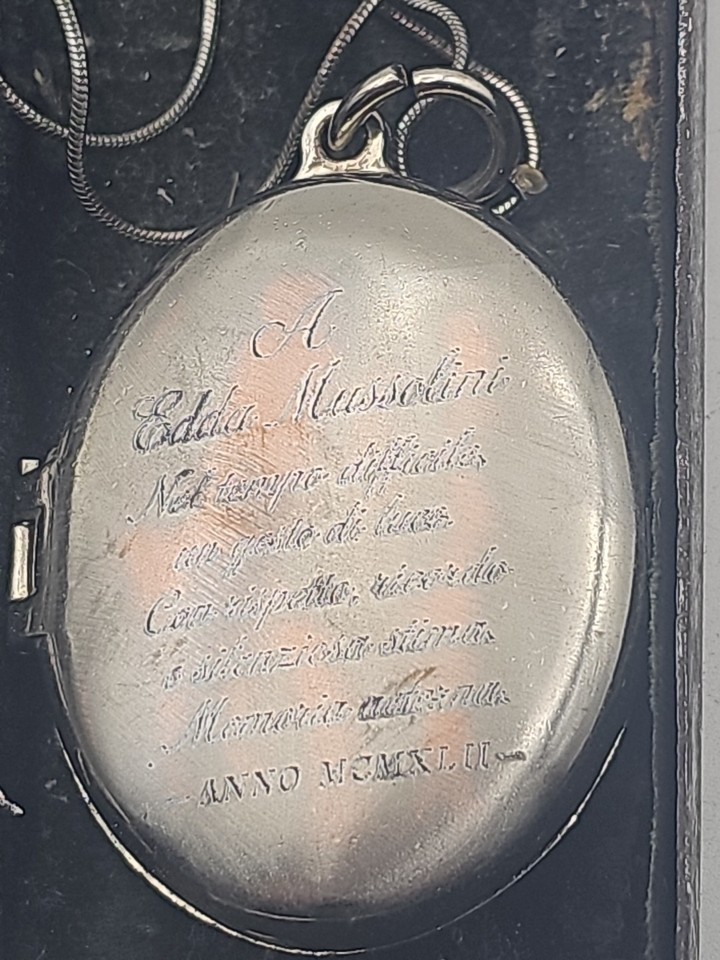 A
Edda Mussolini
Nel tempo difficile,
un gesto di luce.
Con rispetto, ricordo
e silenziosa stima.
Memoria
ANNO MCMXLII